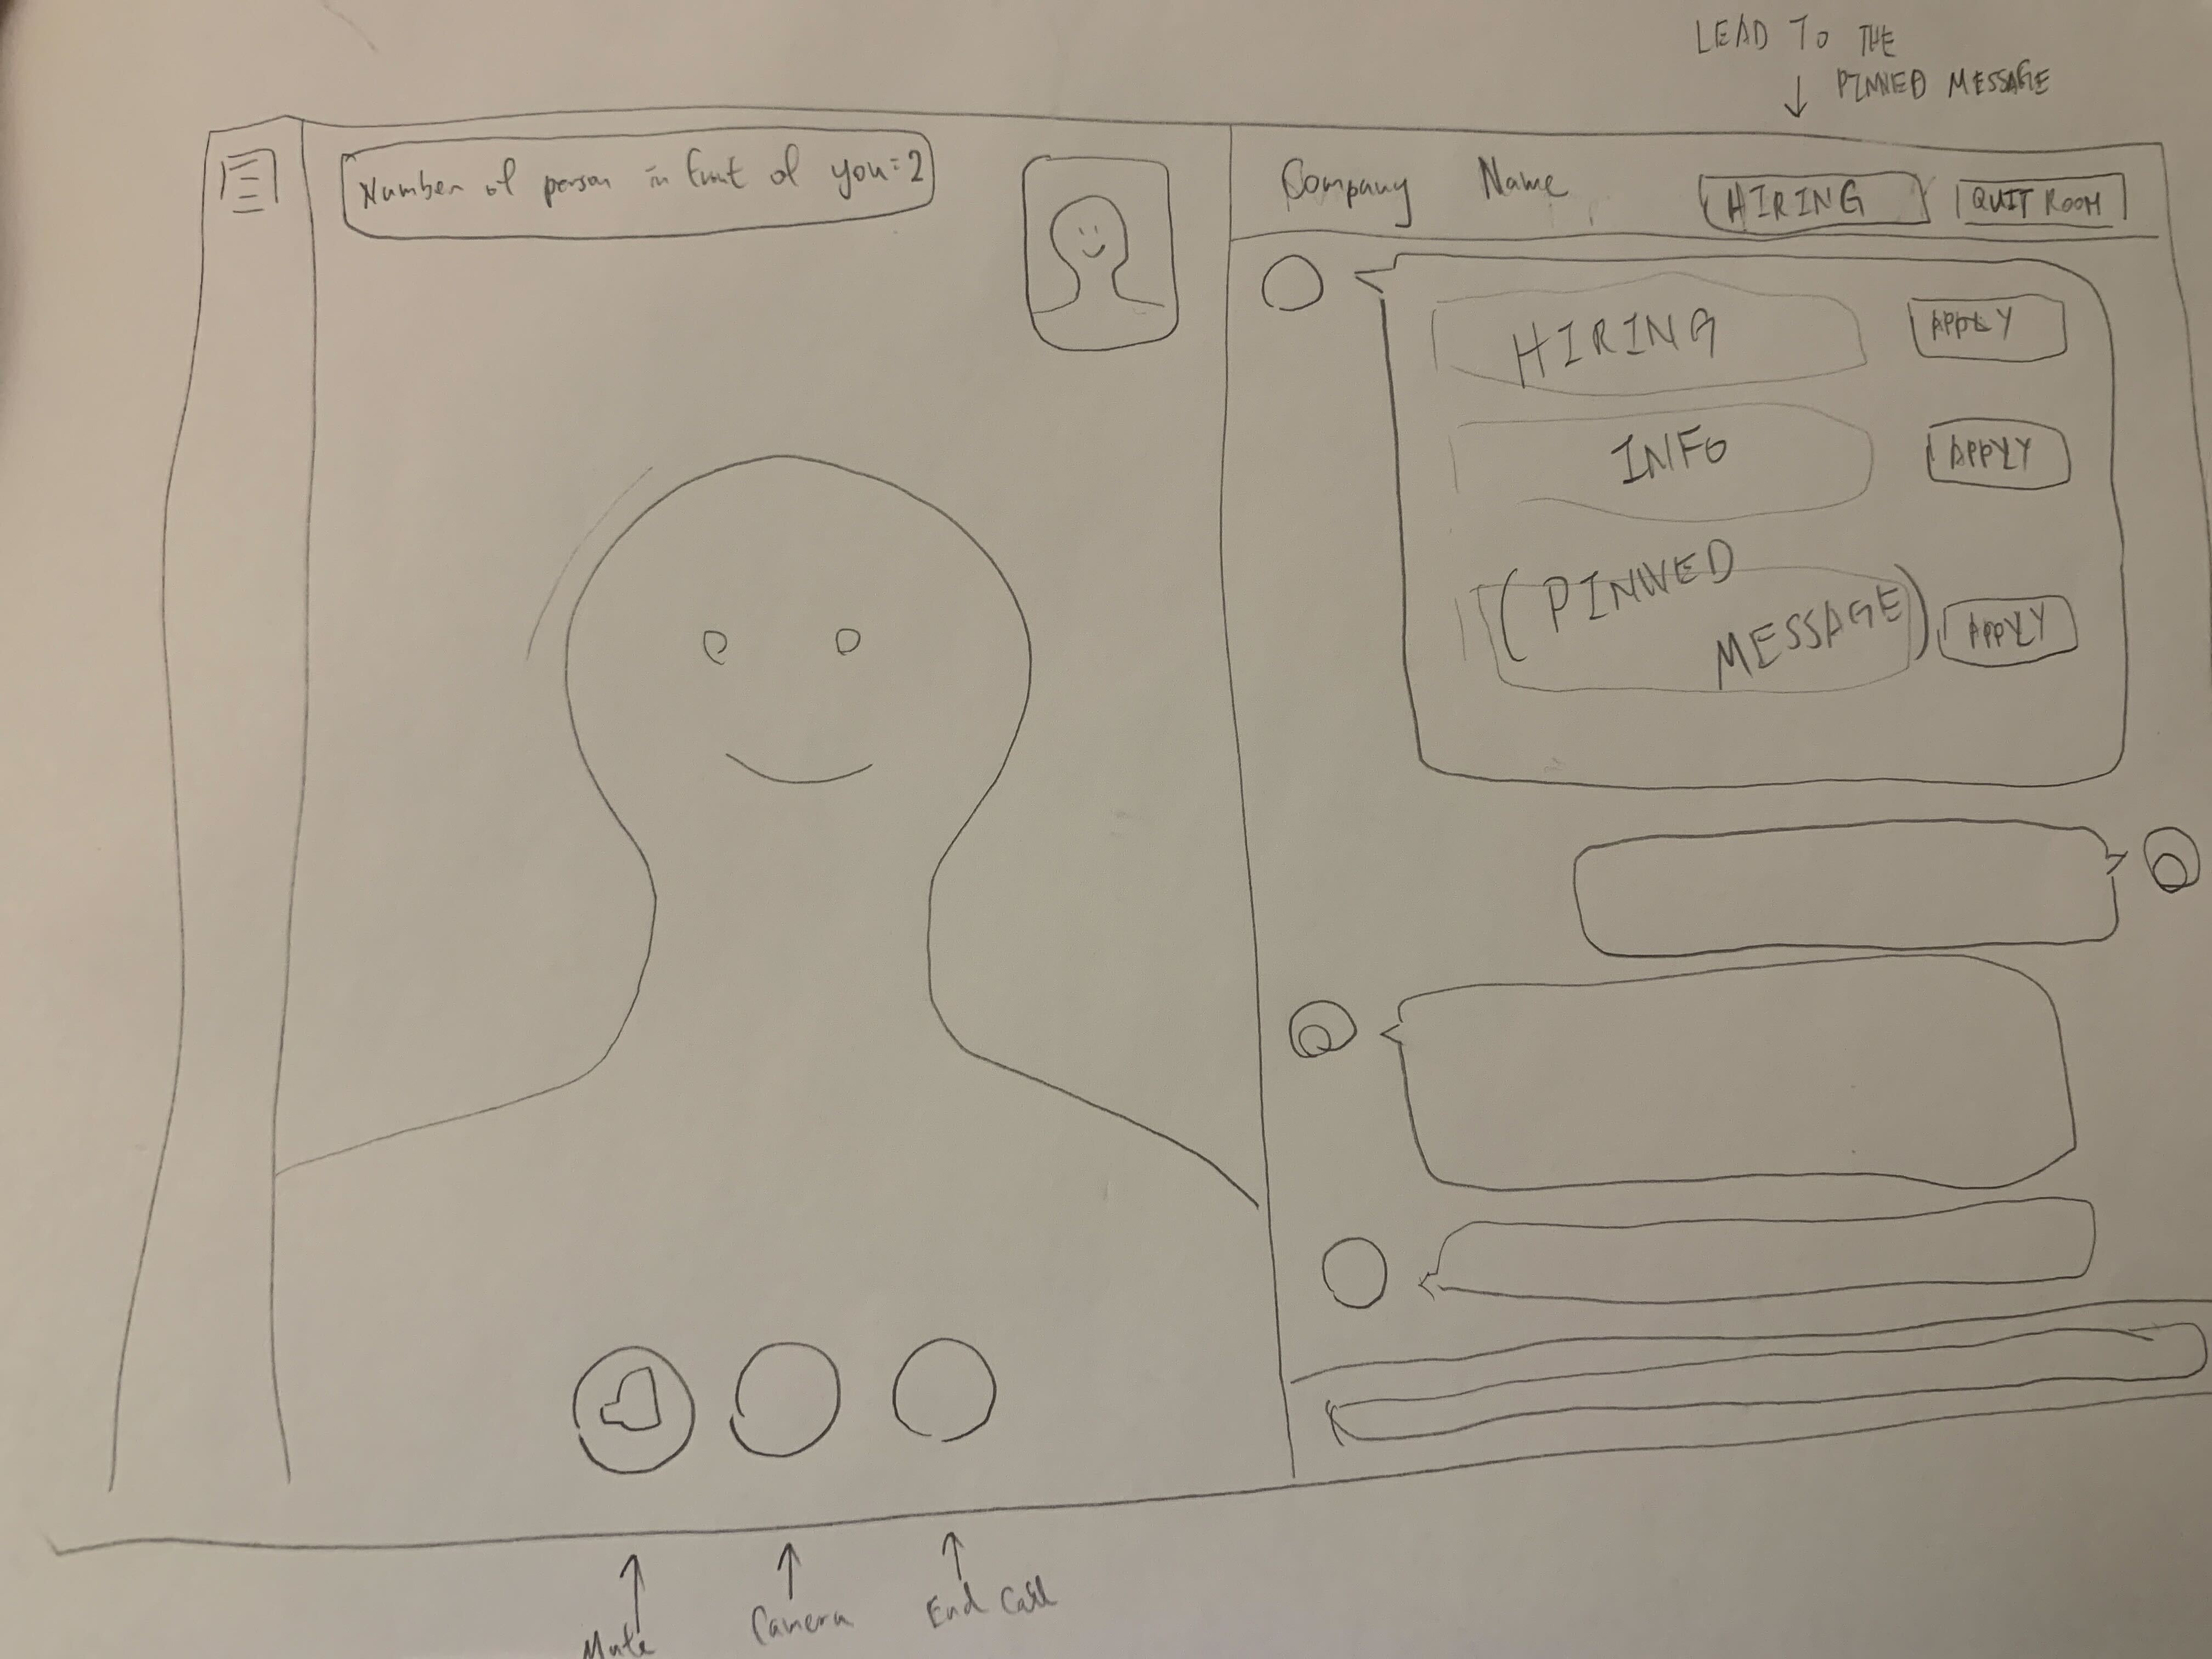 LEAD TO THE
PINNED MESSAGE
Number of person in front of you = 2
Company Name
HIRING
QUIT ROOM
HIRING
APPLY
INFO
APPLY
(PINNED
MESSAGE)
APPLY
Mute
Camera
End Call